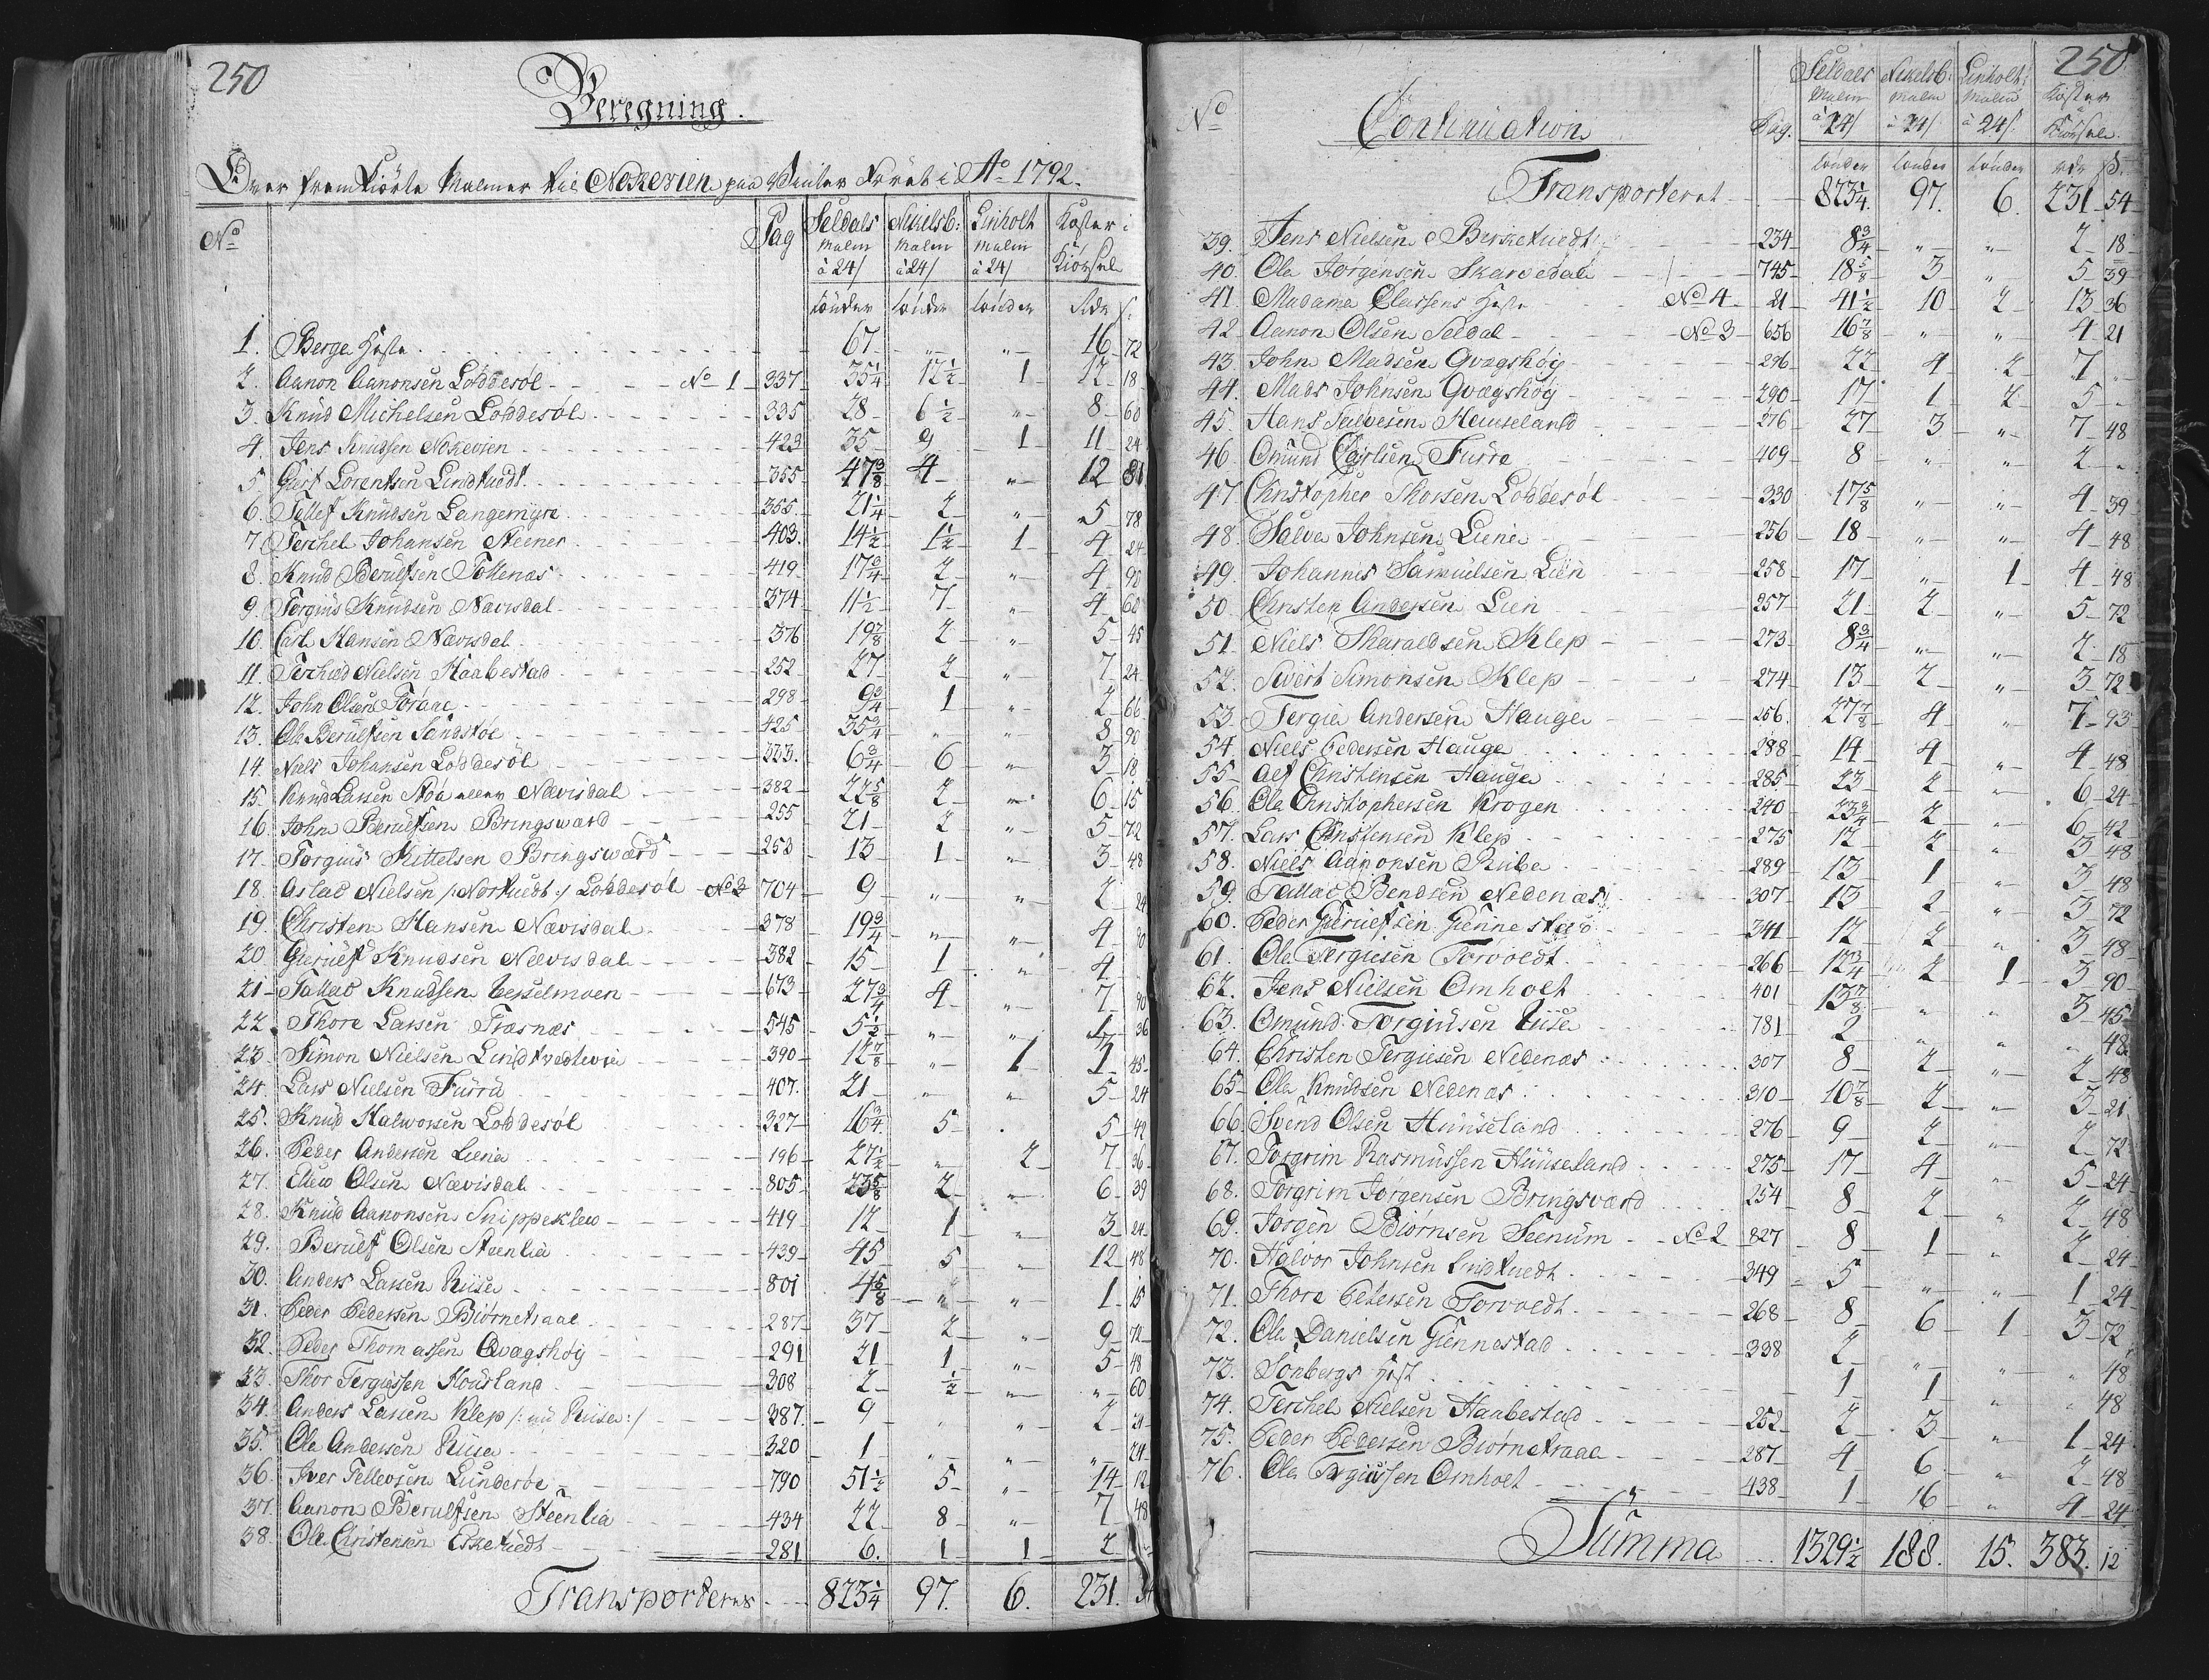 250
Beregning.
Over fremkiörte Malmer til Noskevien paa Vinter Föret i Ao 1792.
No Pag Seldals Malm à 24/ Nikelsb: Malm à 24/ Linholt Malm à 24/ Koster i Kiörsel
tönder tönder tönder Rdr s:
1. Berge Heste 67 " " 16 72
2. Aanon Aanonsen Löddesöl No 1 337 35 1/4 12 1/2 1 12 18
3. Knud Michelsen Löddesöl 335 28 6 1/2 " 8 60
4. Jens Knudsen Noskevien 423 35 9 1 11 24
5. Giert Lorentsen Lindtuedt 355 47 3/8 4 " 12 81
6. Tellef Knudsen Langemÿre 355 21 1/4 2 " 5 78
7. Terchel Johansen Steener 403 14 1/2 1 1/2 1 4 24
8. Knud Berulfsen Tollenæs 419 17 3/4 2 " 4 90
9. Torgius Knudsen Nævisdal 374 11 1/2 7 " 4 60
10. Carl Hansen Nævisdal 376 19 7/8 2 " 5 45
11. Terchel Nielsen Haabestad 252 27 2 " 7 24
12. John Olsen Torane 298 9 3/4 1 " 2 66
13. Ole Berulfsen Sandstöe 425 35 3/4 " " 8 90
14. Niels Johansen Löddesöl 323 6 3/4 6 " 3 18
15. Knud Larsen Nævisdal 382 22 5/8 2 " 6 15
16. John Berulfsen Bringsværd 255 21 2 " 5 72
17. Torgius Kittelsen Bringsværd 253 13 1 " 3 48
18. Aslac Nielsen /:Nörtuedt:/ Löddesöl No 2 704 9 " " 2 24
19. Christen Hansen Nævisdal 378 19 3/4 " " 4 90
20. Gierulf Knudsen Nævisdal 382 15 1 " 4
21. Tallac Knudsen Vesselmoen 673 27 3/4 4 " 7 90
22. Thore Larsen Træsnæs 545 5 1/2 " " 1 36
23. Simon Nielsen Lindtvedtevie 390 12 7/8 " 1 3 45
24. Lars Nielsen Furre 407 21 " " 5 24
25. Knud Halworsen Löddesöl 327 16 3/4 5 . 5 42
26. Peder Andersen Liene 196 27 1/2 " 2 7 36
27. Elew Olsen Nævisdal 805 23 5/8 2 " 6 39
28. Knud Aanonsen Snippeklew 419 12 1 " 3 24
29. Berulf Olsen Steenlia 439 45 5 " 12 48
30. Anders Larsen Riise 801 4 5/8 " " 1 15
31. Peder Pedersen Biörnetraae 287 37 2 " 9 72
32. Peder Thomassen Qvagshöy 291 21 1 " 5 48
33. Thor Tergiessen Housland 308 2 1/2 " " 60
34. Anders Larsen Klep /:nu Riise:/ 387 9 " " 2 24
35. Ole Andersen Riise 320 1 " " " 24
36. Iver Tellevsen Lunderöe 790 51 1/2 5 " 14 12
37. Aanon Berulfsen Steenlia 434 22 8 " 7 48
38. Ole Christensen Esketuedt 281 6. 1 1 2
Transporteres 823 1/4 97. 6. 231. 54
250
No Continuation Pag. Seldals Malm à 24/ Nikelsb: Malm à 24/ Linholt: Malm à 24/ Koster Kiörsel
tönder tönder tönder rdr s.
Transporteret 823 1/4 97. 6. 231 54
39. Jens Nielsen Berketuedt 234 8 3/4 " " 2 18
40. Ole Jörgensen Skarvedal 745 18 5/8 3 " 5 39
41. Madame Classens Heste No 4 21 41 1/2 10 2 13 36
42. Aanon Olsen Seldal No 3 656 16 7/8 " " 4 21
43. John Madsen Qvagshöy 296 22 4 2 7 "
44. Mads Johnsen Qvagshöy 290 17 1 2 5 "
45. Hans Salvesen Heuseland 276 27 3 " 7 48
46. Omund Carlsen Furre 409 8 " " 2 "
47. Christopher Thorsen Löddesöl 330 17 5/8 " " 4 39
48. Salve Johnsen Liene 256 18 " " 4 48
49. Johannes Samuelsen Lien 258 17 " 1 4 48
50. Christen Andersen Lien 257 21 2 " 5 72
51. Niels Tharaldsen Klep 273 8 3/4 " " 2 18
52. Sivert Simonsen Klep 274 13 2 " 3 72
53. Tergie Andersen Hauge 256. 27 7/8 4 " 7 93
54. Niels Pedersen Hauge 288 14 4 " 4 48
55. Alf Christensen Hauge 285 23 2 " 6 24
56. Ole Christophersen Krogen 240 23 3/4 2 " 6 42
57. Lars Christensen Klep 275 12 2 " 3 48
58. Niels Aanonsen Ribe 289 13 1 " 3 48
59. Tallac Bendsen Nedenæs 307 13 2 " 3 72
60. Peder Gierulfsen Giennestad 341 12 2 " 3 48
61. Ole Tergiesen Torvoldt 266 12 3/4 2 1 3 90
62. Jens Nielsen Omholt 401 13 7/8 " " 3 45
63. Omund Torgiusen Riise 781 2 " " " 48
64. Christen Tergiesen Nedenæs 307 8 2 " 2 48
65. Ole Knudsen Nedenæs 310 10 7/8 2 " 3 21
66. Svend Olsen Huuseland 276 9 2 " 2 72
67. Torgrim Rasmussen Huuseland 275 17 4 " 5 24
68. Torgrim Jörgensen Bringsværd 254 8 2 " 2 48
69. Jörgen Biörnsen Seenum No 2 827 8 1 " 2 24
70. Halvor Johnsen Lindtuedt 349 5 " " 1 24
71. Thore Petersen Torvoldt 268 8 6 1 3 72
72. Ole Danielsen Giennestad 338 2 " " " 48
73. Sönbergs Hest 1 1 " " 48
74. Terchel Nielsen Haabestad 252 2 3 " 1 24
75. Peder Pedersen Biörnetraae 287 4 6 " 2 48
76. Ole Torgiussen Omholt 438 1 16 " 4 24
Summa 1329 1/2 188. 15. 383. 12